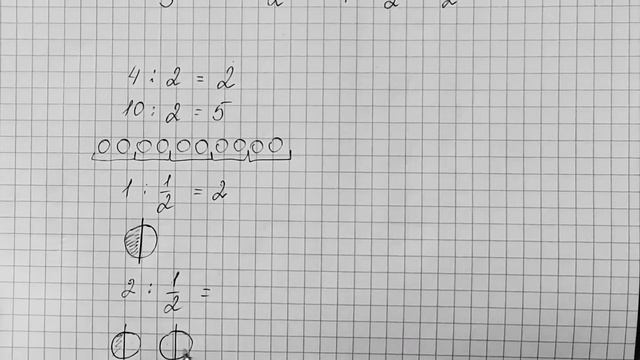 4 : 2 = 2
10 : 2 = 5
1 : 1/2 = 2
2 : 1/2 =